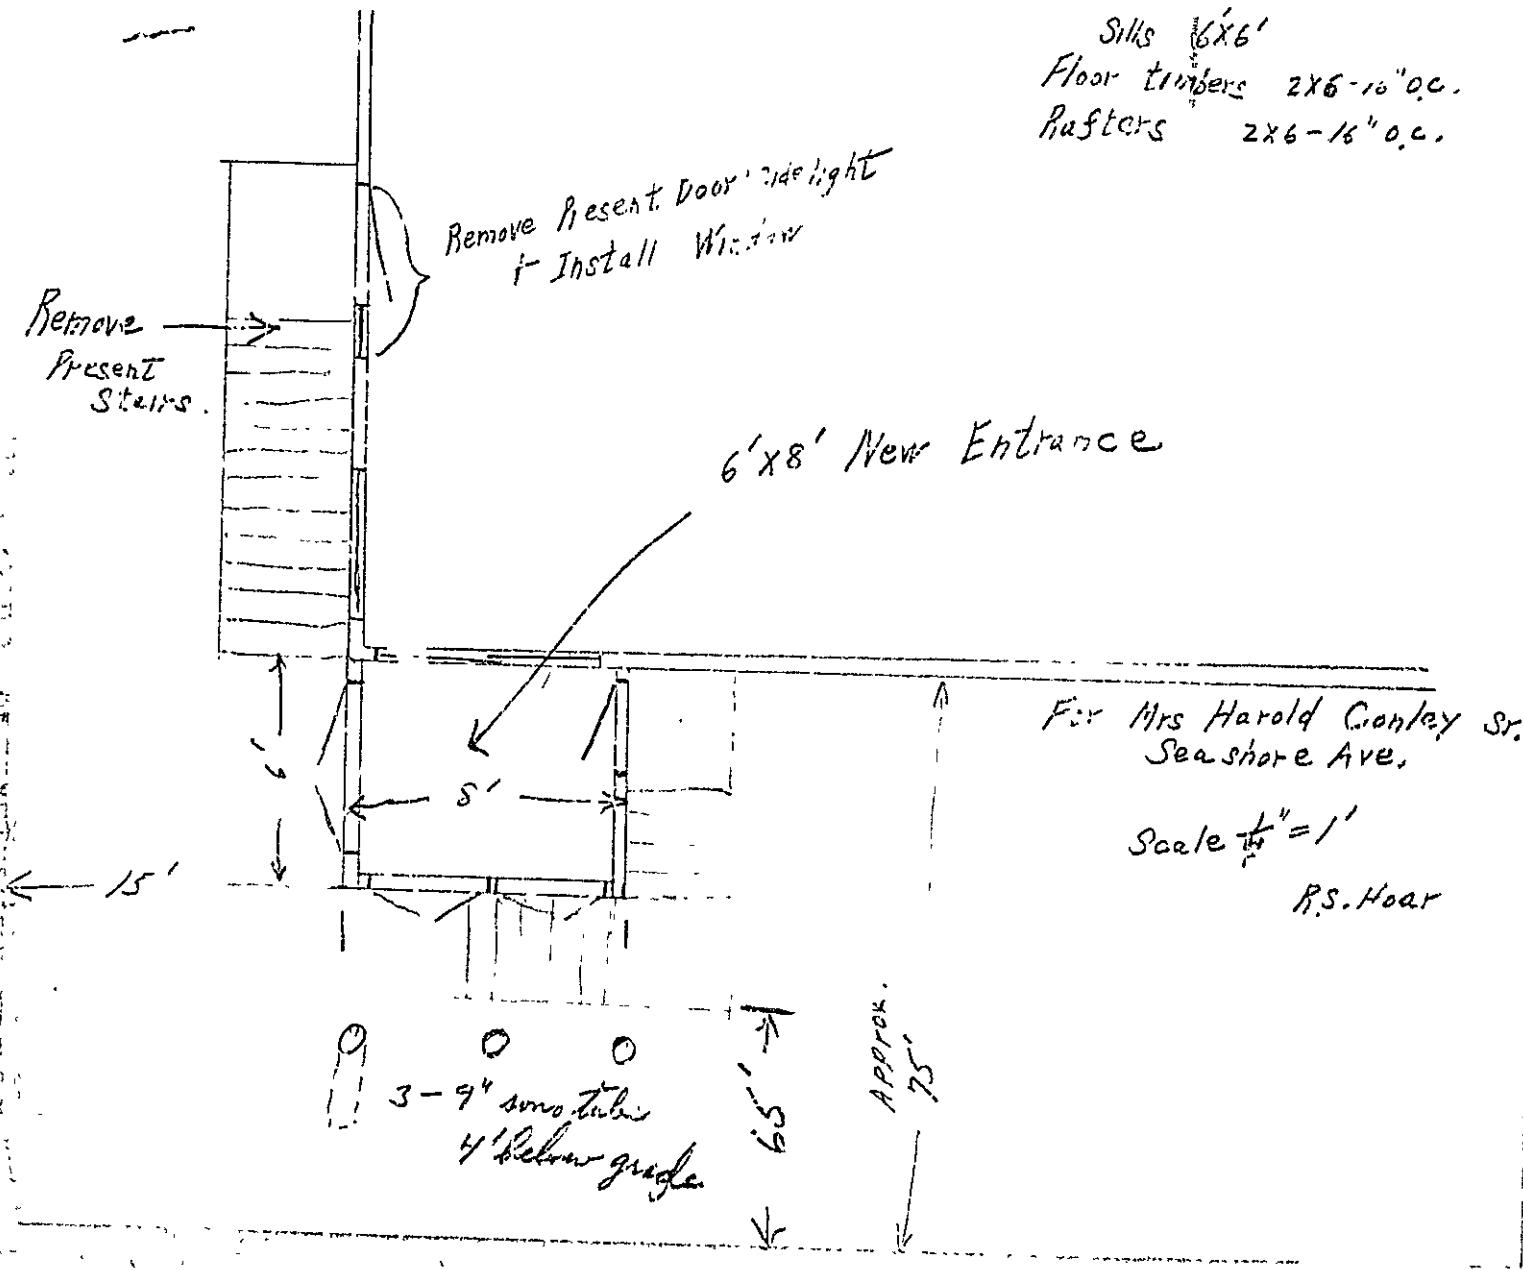 Sills 6X6'
Floor timbers 2X6-16"O.C.
Rafters 2X6-16"O.C.
Remove Present Door Sidelight
+ Install Window
Remove
Present
Stairs.
6'X8' New Entrance
For Mrs Harold Conley Sr.
Seashore Ave.
6'
8'
Scale 1/4"=1'
15'
R.S. Hoar
APProx.
75'
65'
3-9" sono tubes
4' below grade